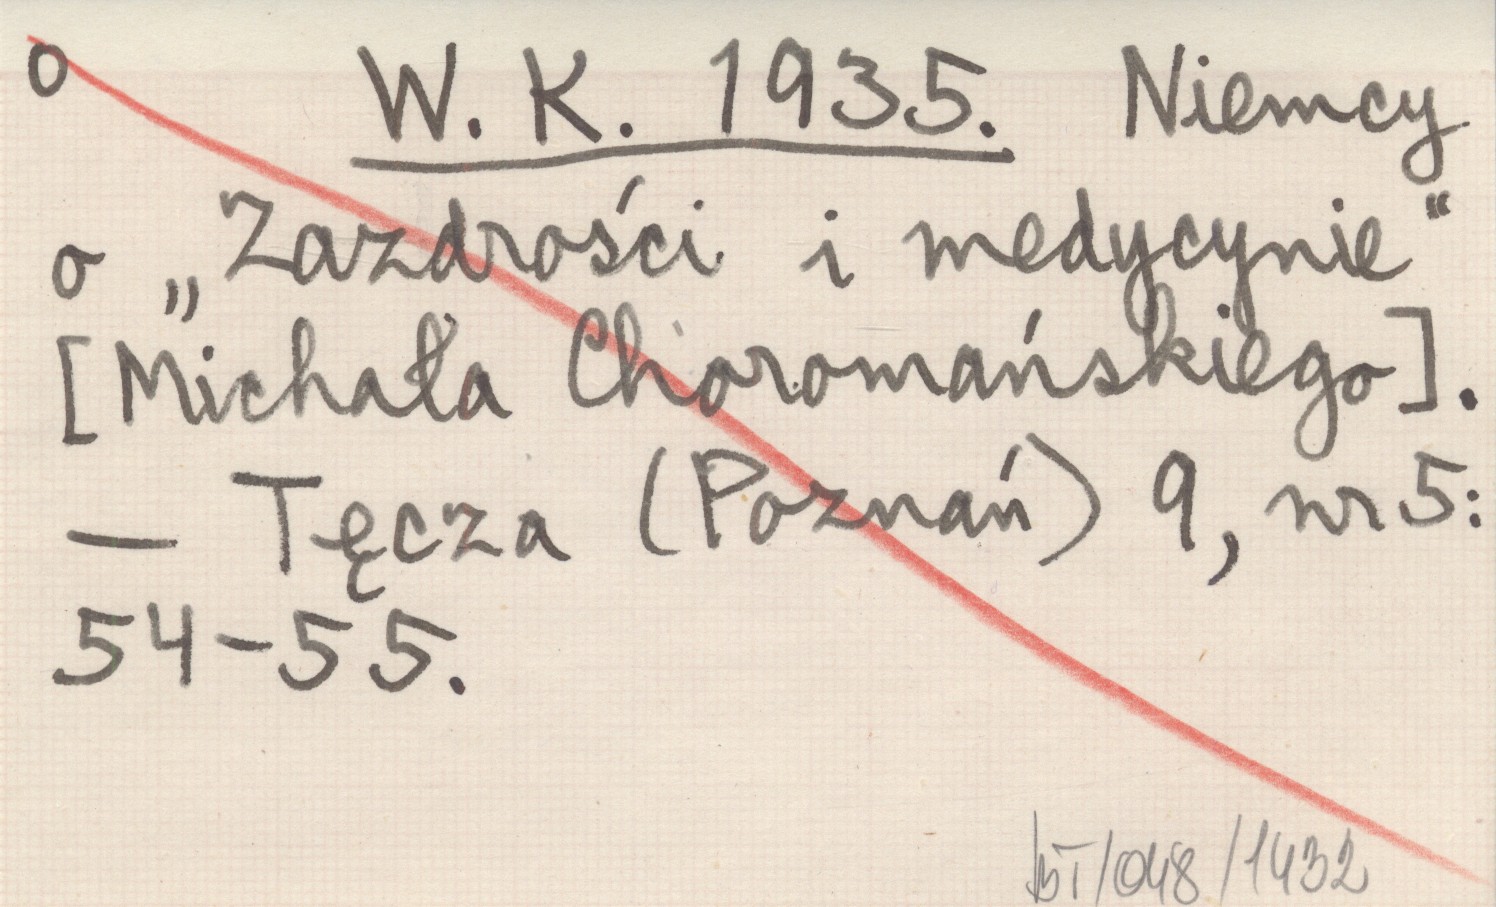 o W. K. 1935. Niemcy
o „Zazdrości i medycynie“
[Michała Choromańskiego].
— Tęcza (Poznań) 9, nr 5:
54-55.
/048/1432